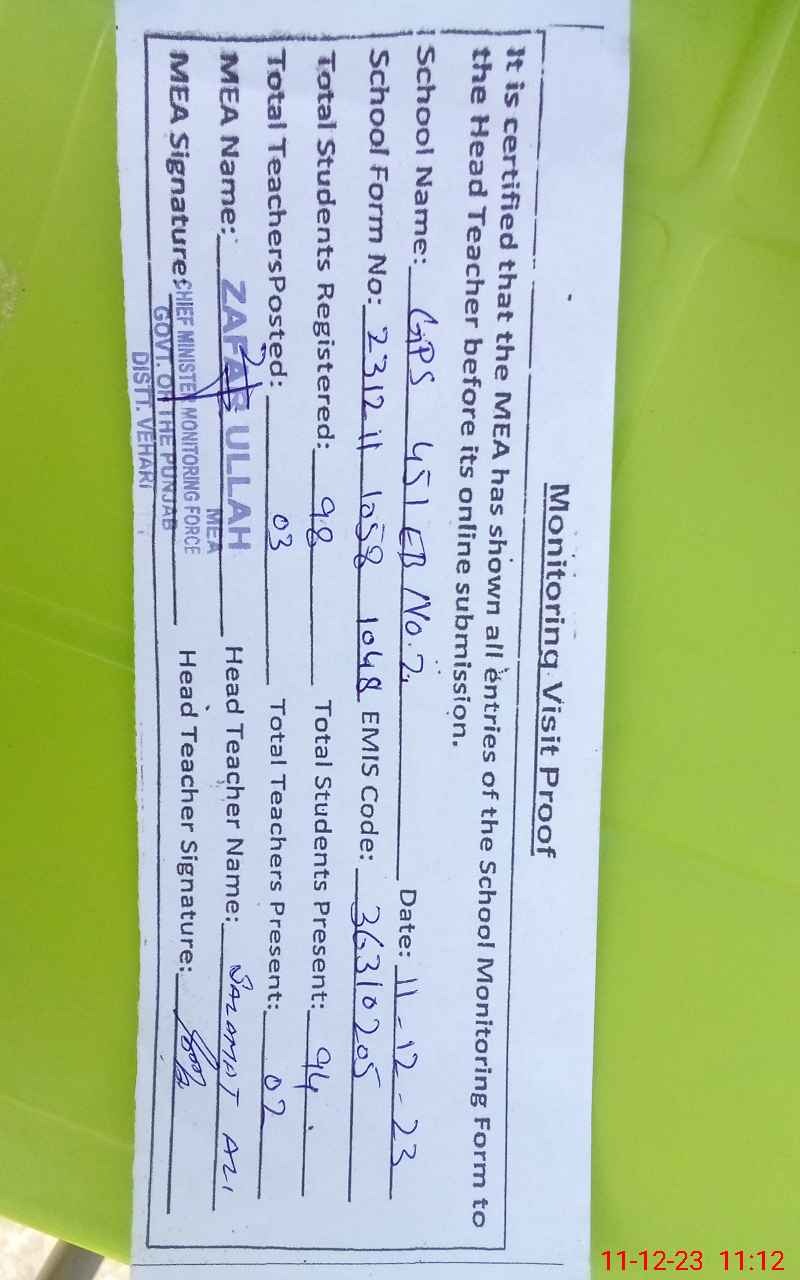 Monitoring Visit Proof
It is certified that the MEA has shown all entries of the School Monitoring Form to
the Head Teacher before its online submission.
School Name: GPS 451 EB No.2 Date: 11-12-23
School Form No: 2312 11 1058 1048 EMIS Code: 36310205
Total Students Registered: 98 Total Students Present: 94
Total TeachersPosted: 03 Total Teachers Present: 02
MEA Name: ZAFAR ULLAH Head Teacher Name: SALAMAT ALI
MEA
MEA Signature: Head Teacher Signature:
CHIEF MINISTER MONITORING FORCE
GOVT. OF THE PUNJAB
DISTT. VEHARI
11-12-23 11:12